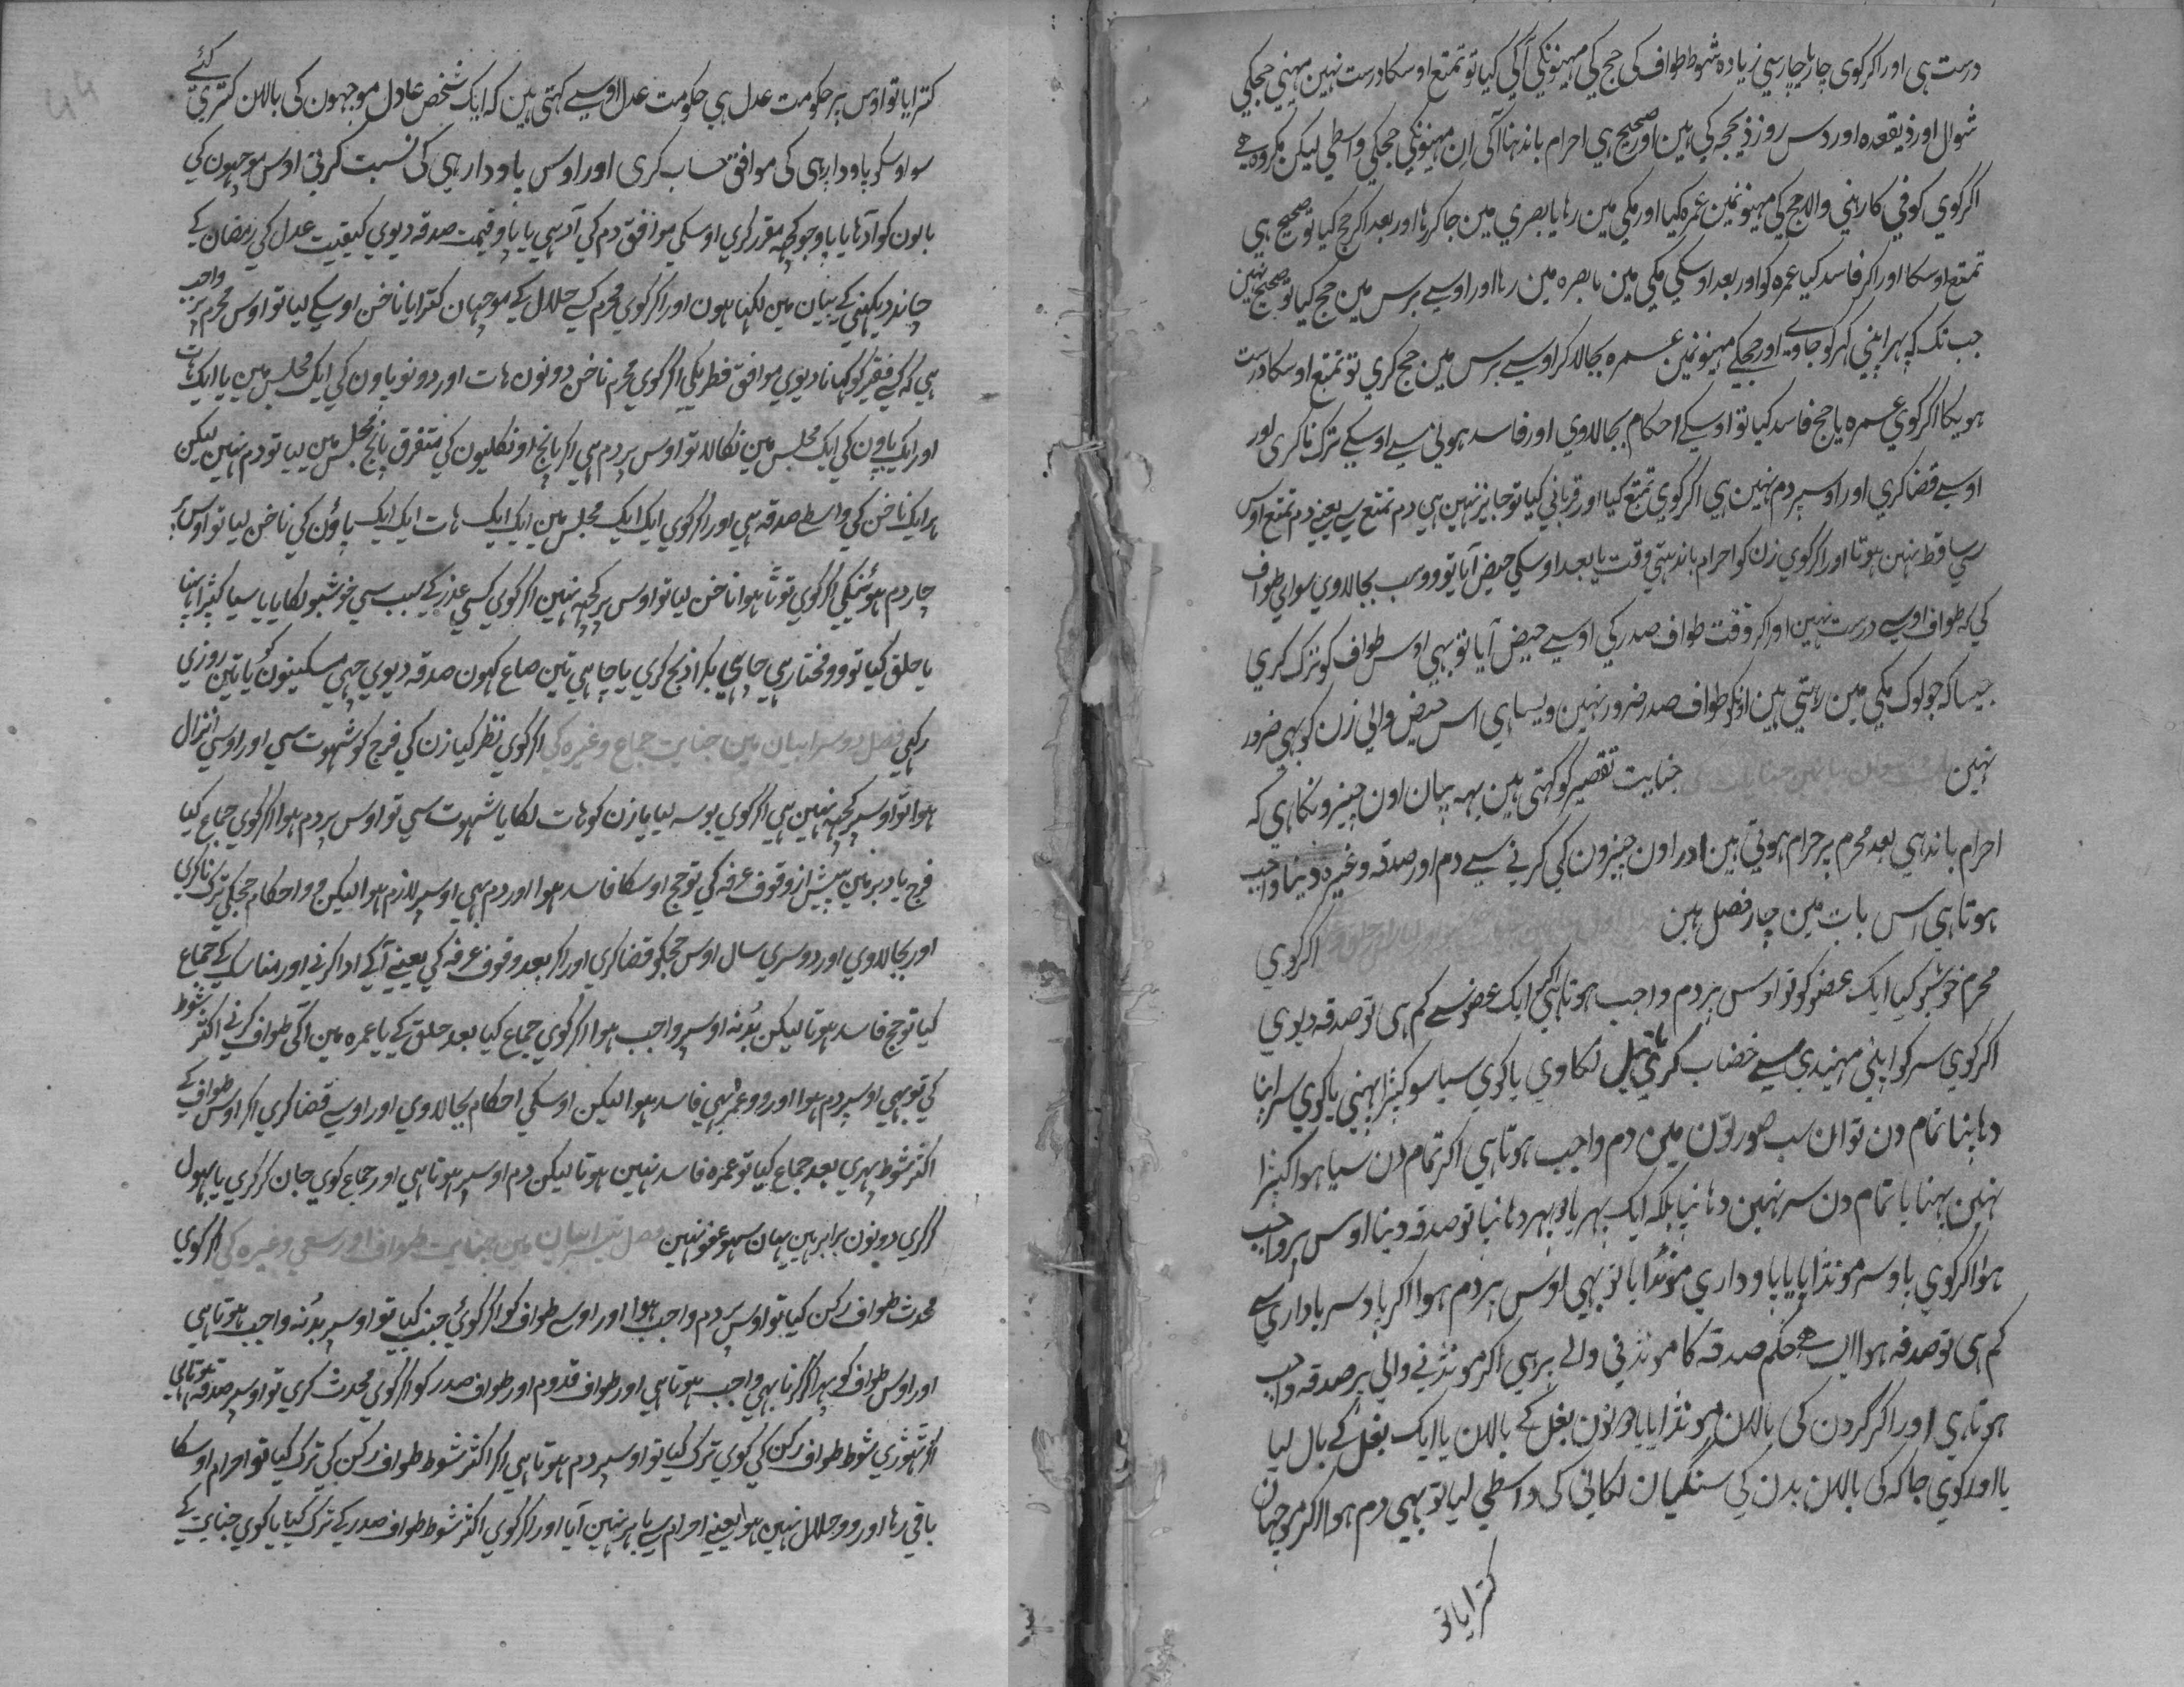 درست ہی اور اکر کوی چار یا چار سی زیادہ شوط طواف کی حج کی مہینونکی آکی کیا تو تمتع اوسکا درست نہین مہینی حجکی
شوال اور ذیقعدہ اور دس روز ذیحجہ کی ہین اور صحیح ہی احرام باندہنا آکی ان مہینونکی حجکی واسطی لیکن مکروہ ہے
اکر کوی کوفی کا رہنی والا حج کی مہینونمین عمرہ کیا اور مکی مین رہا یا بصری مین جا کر رہا اور بعد اکر حج کیا تو صحیح ہی
تمتع اوسکا اور اکر فاسد کیا عمرہ کو اور بعد اوسکی مکی مین یا بصرہ مین رہا اور اوسے برس مین حج کیا تو صحیح نہین
جب تک کہ پہر اپنی کہر کو جاوے اور حجکے مہینونمین عمرہ بجا لا کر اوسے برس مین حج کری تو تمتع اوسکا درست
ہویکا اکر کوی عمرہ یا حج فاسد کیا تو اوسکے احکام بجا لاوی اور فاسد ہونی سے اوسکے ترک نا کری اور
اوسے قضا کری اور اوسپر دم نہین ہی اکر کوی تمتع کیا اور قربانی کیا تو جایز نہین ہی دم تمتع سے یعنے دم تمتع اوس
سے ساقط نہین ہوتا اور اکر کوی زن کو احرام باندہتی وقت یا بعد اوسکی حیض آیا تو وو سب بجا لاوی سوای طواف
کی کہ طواف اوسے درست نہین اور اکر وقت طواف صدر کی اوسے حیض آیا تو بہی اوس طواف کو ترک کری
جیسا کہ جو لوک مکی مین رہتی ہین اونکو طواف صدر ضرور نہین ویسا ہی اس حیض والی زن کو بہی ضرور
نہین جنایت تقصیر کو کہتی ہین یہہ بیان اون چیزونکا ہی کہ
احرام باندہی بعد محرم پر حرام ہوتی ہین اور اون چیزون کی کرنے سے دم اور صدقہ وغیرہ دینا واجب
ہوتا ہی اس بات مین چار فصل ہین اکر کوی
محرم خوشبو کیا ایک عضو کو تو اوس پر دم واجب ہوتا ہی اکر ایک عضو سے کم ہی تو صدقہ دیوی
اکر کوی سر کو اپنی مہیندی سے خضاب کری یا تیل لکاوی یا کوی سیا سو کپڑا پہنی یا کوی سر اپنا
دہاپنا تمام دن تو ان سب صورتون مین دم واجب ہوتا ہی اکر تمام دن سیا ہوا کپڑا
نہین پہنا یا تمام دن سر نہین دہانپا بلکہ ایک پہر یا دوپہر دہانپا تو صدقہ دینا اوس پر واجب
ہوا اکر کوی پاو سر مونڈایا یا پاو داری مونڈایا تو بہی اوس پر دم ہوا اکر پاو سر یا داری سے
کم ہی تو صدقہ ہوا ایسا ہے حکم صدقہ کا مونڈنی والے پر ہی اکر مونڈنے والی پر صدقہ واجب
ہوتا ہی اور اکر کردن کی بالان مونڈایا یا دونون بغل کے بالان یا ایک بغل کے بال لیا
یا اور کوی جاکہ کی بالان بدن کی سنکیان لکانی کی واسطی لیا تو بہی دم ہوا اکر موجہان
کترایا تو
کترایا تو اوس پر حکومت عدل ہی حکومت عدل اوسے کہتی ہین کہ ایک شخص عادل موجہون کی بالان کتری کئے
سو اوسکو پاو داریہی کی موافق حساب کری اور اوس پاو داریہی کی نسبت کرتی اوس موجہون کی
بالون کو آدہا یا پاو جو کجہہ مقرر کری اوسکی موافق دم کی آدہی یا پاو قیمت صدقہ دیوی کیفیت عدل کی رمضان کے
چاند دیکہنی کے بیان مین لکہا ہون اور اکر کوی محرم کسے حلال کے موجہان کترایا یا ناخن اوسکے لیا تو اوس محرم پر واجب
ہی کہ کسے فقیر کو کہانا دیوی موافق فطریکی اکر کوی محرم ناخن دونون ہات اور دونو پاون کی ایک مجلس مین یا ایک ہات
اور ایک پاون کی ایک مجلس مین نکالا تو اوس پر دم ہی اکر پانچ اونکلیون کی متفرق پانچ مجلس مین لیا تو دم نہین لیکن
ہر ایک ناخن کی واسطے صدقہ ہی اور اکر کوی ایک ایک مجلس مین ایک ایک ہات ایک ایک پاؤن کی ناخن لیا تو اوس پر
چار دم ہوئنکی اکر کوی توٹا ہوا ناخن لیا تو اوس پر کجہہ نہین اکر کوی کسی عذر کے سبب سی خوشبو لکایا یا سیا کپڑا پہنا
یا حلق کیا تو وو مختار ہی چاہی بکرا ذبح کری یا چاہی تین صاع کیہون صدقہ دیوی چہی مسکینون کو یا تین روزی
رکہی فصل دوسرا بیان مین جنایت جماع وغیرہ کی اکر کوی نظر کیا زن کی فرج کو شہوت سی اور اوسی انزال
ہوا تو اوسپر کجہہ نہین ہی اکر کوی بوسہ لیا یا زن کو ہات لکایا شہوت سی تو اوس پر دم ہوا اکر کوی جماع کیا
فرج یا دبر مین پیش از وقوف عرفہ کی تو حج اوسکا فاسد ہوا اور دم بہی اوسپر لازم ہوا لیکن وو احکام حجکی ترک نا کری
اور بجا لاوی اور دوسری سال اوس حجکو قضا کری اور اکر بعد وقوف عرفہ کی یعنے آکے ادا کرنے اور مناسک کے جماع
کیا تو حج فاسد ہوتا لیکن بدنہ اوسپر واجب ہوا اکر کوی جماع کیا بعد حلق کے یا عمرہ مین آکی طواف کرنے اکثر شوط
کی تو بہی اوسپر دم ہوا اور وو عمرہ بہی فاسد ہوا لیکن اوسکی احکام بجا لاوی اور اوسے قضا کری اکر اوس طواف کے
اکثر شوط پہری بعد جماع کیا تو عمرہ فاسد نہین ہوتا لیکن دم اوسپر ہوتا ہی اور جماع کوی جان کر کری یا بہول
کر کری دونون برابر ہین یہان سہو عفو نہین فصل تیسرا بیان مین جنایت طواف اور سعی وغیرہ کی اکر کوی
محدث طواف رکن کیا تو اوس پر دم واجب ہوا اور اوسے طواف کو اکر کوئی جنب کیا تو اوسپر بدنہ واجب ہوتا ہی
اور اوس طواف کو پہرا کرنا بہی واجب ہوتا ہی اور طواف قدوم اور طواف صدر کو اکر کوی محدث کری تو اوسپر صدقہ ہوتا ہی
اکر تہوری شوط طواف رکن کی کوی ترک کیا تو اوسپر دم ہوتا ہی اکر اکثر شوط طواف رکن کی ترک کیا تو احرام اوسکا
باقی رہا اور وو حلال نہین ہوا یعنے احرام سے باہر نہین آیا اور اکر کوی اکثر شوط طواف صدر کے ترک کیا یا کوی جنایت کے